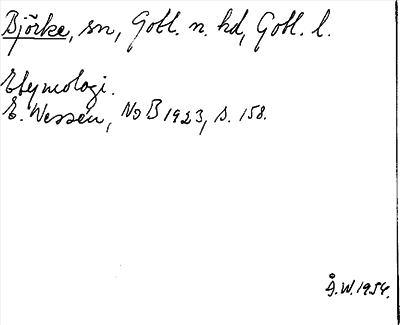 Björke, sn, Gotl. n. hd, Gotl. l.
Etymologi.
E. Wessén, NoB 1923, s. 158.
Å.W. 1954.